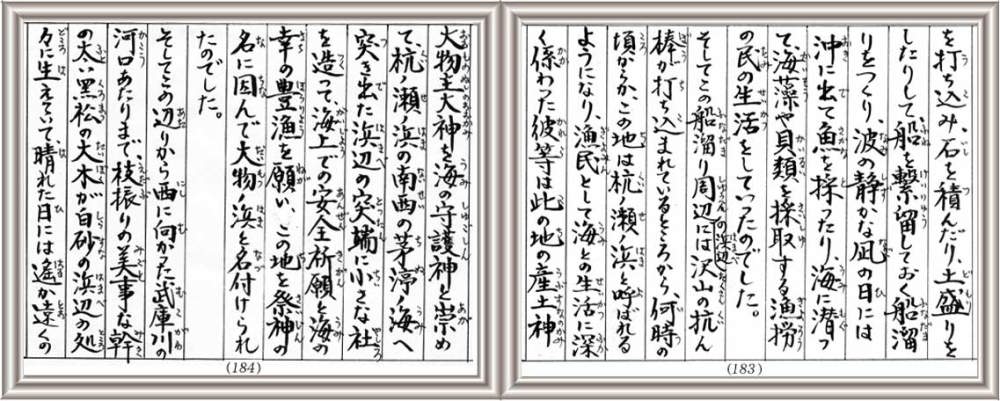 を打ち込み、石を積んだり、土盛りを
したりして船を繋留しておく船溜
りをつくり、波の静かな凪の日には
沖に出て魚を採ったり、海に潜っ
て、海藻や貝類を採取する漁撈
の民の生活をしていったのでした。
そしてこの船溜り周辺には沢山の杭ん
棒が打ち込まれているところから、何時の
頃からか、この地は杭ノ瀬ノ浜と呼ばれる
ようになり、漁民として海との生活に深
く係わった彼等は此の地の産土神
(183)
大物主大神を海の守護神と崇め
て、杭ノ瀬ノ浜の南西の茅渟ノ海へ
突き出た浜辺の突端に小さな社
を造って、海上での安全祈願と海の
幸の豊漁を願い、この地と祭神の
名に因んで大物ノ浜と名付けられ
たのでした。
そしてこの辺りから西に向かった武庫川の
河口あたりまで、枝振りの美事な幹
の太い黒松の大木が白砂の浜辺の処
々に生えていて、晴れた日には遙か遠くの
(184)